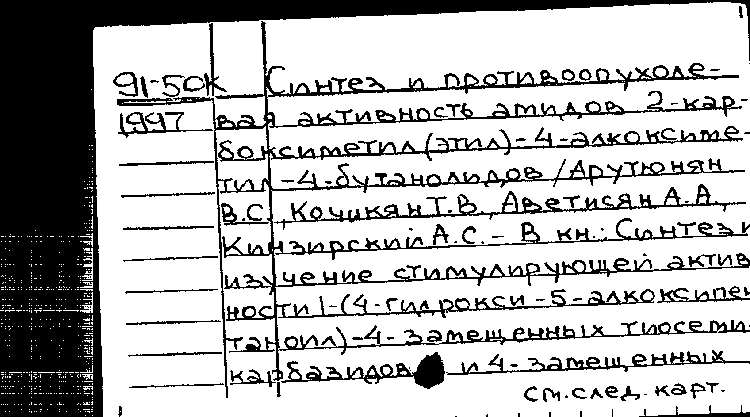 91-50К Синтез и противоопухоле-
1997 вая активность амидов 2-кар-
боксиметил(этил)-4-алкоксиме-
тил-4-бутанолидов/Арутюнян
В.С., Кочикян Т.В., Аветисян А.А.,
Кинзирский А.С. – В кн.: Синтез и
изучение стимулирующей актив
ности 1-(4-гидрокси-5-алкоксипен
таноил)-4-замещенных тиосеми
карбазидов и 4-замещенных
см.след. карт.